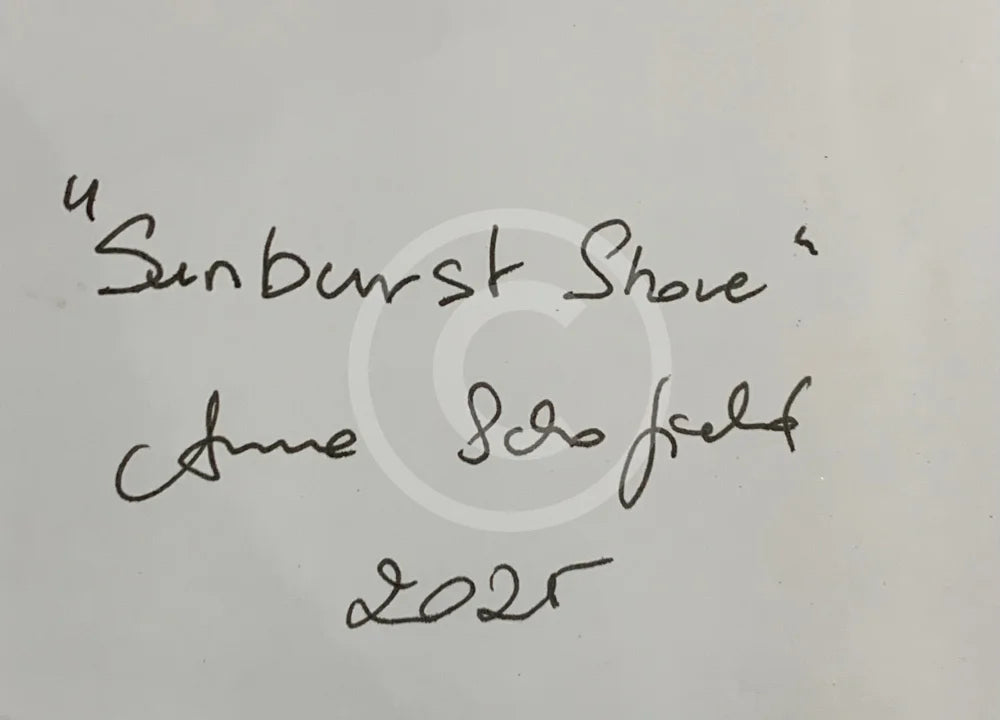 "Sunburst Shore"
Anne Schofield
2025